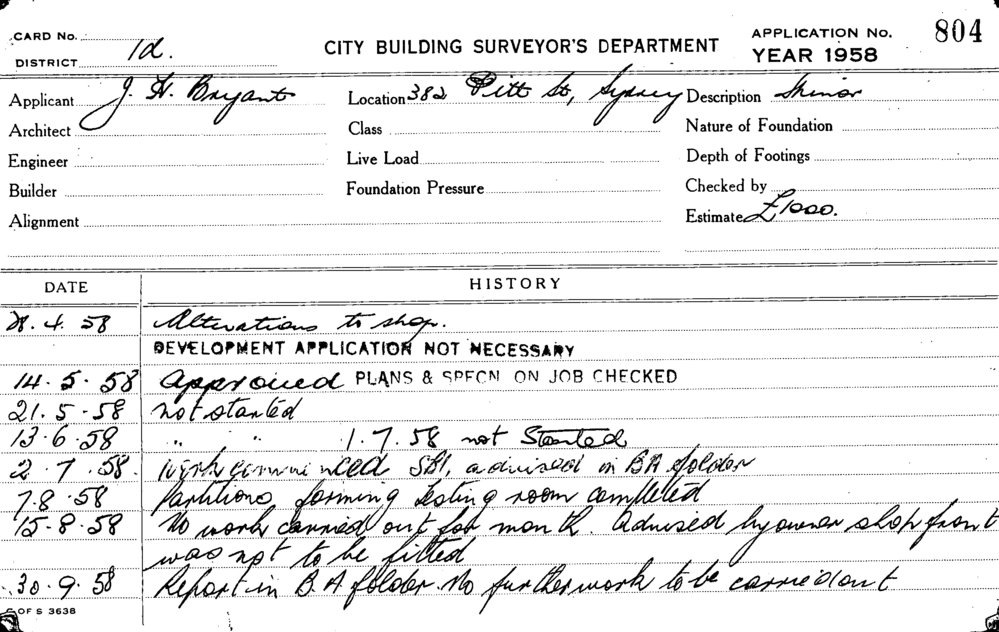 CARD No.
DISTRICT 1d.
CITY BUILDING SURVEYOR'S DEPARTMENT
APPLICATION No. 804
YEAR 1958
Applicant J. H. Bryant
Location 382 Pitt St, Sydney
Description Minor
Architect
Class
Nature of Foundation
Engineer
Live Load
Depth of Footings
Builder
Foundation Pressure
Checked by
Alignment
Estimate £1000.
DATE HISTORY
28. 4. 58 Alterations to shop.
DEVELOPMENT APPLICATION NOT NECESSARY
14. 5. 58 Approved PLANS & SPECN ON JOB CHECKED
21. 5. 58 Not started
13. 6. 58 " " 1. 7. 58 not Started
2. 7. 58. Work commenced advised in BA folder
7.8.58 Partitions forming testing room completed
15.8.58 No work carried out for month. Advised by owner shop front
was not to be fitted
30.9.58 Report in B.A folder. No further work to be carried out
OF S 3638